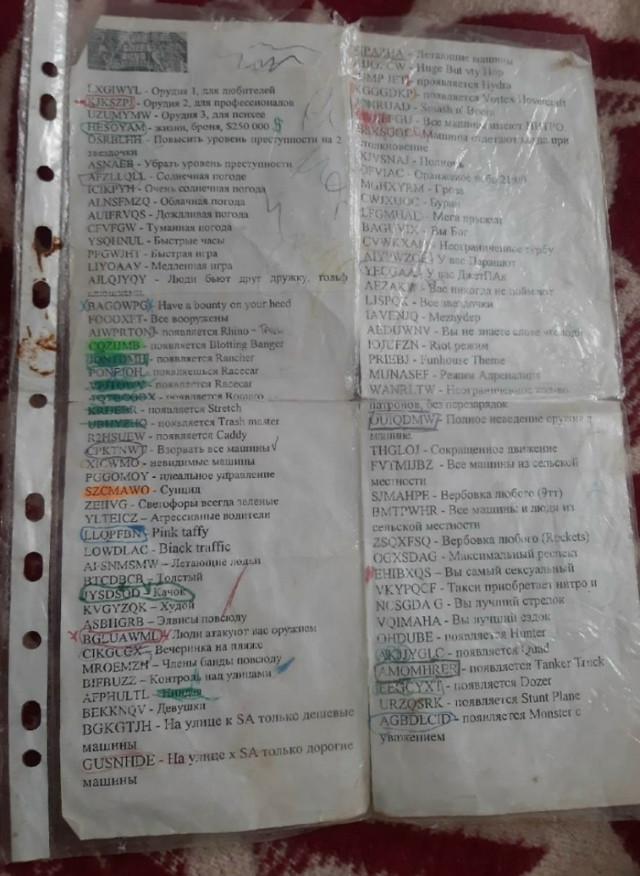 LXGIWYL - Орудия 1, для любителей
KJKSZPJ - Орудия 2, для профессионалов
UZUMYMW - Орудия 3, для психее
HESOYAM - жизни, броня, $250 000 $
OSRBLHH - Повысить уровень преступности на 2
звездочки
ASNAEB - Убрать уровень преступности
AFZLLQLL - Солнечная погоде
ICIKPYH - Очень солнечная погода
ALNSFMZO - Облачная погода
AUIFRVQS - Дождливая погода
CFVFGW - Туманная погода
YSQHNUL - Быстрые часы
PPGWJHT - Быстрая игра
LIYOAAY - Медленная игра
AJLQJYQY - Люди бьют друг дружку,
BAGOWPG - Have a bounty on your heed
FOOOXFT- Все вооружены
AIWPRTON - появляется Rhino -
CQZIJMB - появляется Blotting Banger
JQNTDMH - появляется Rancher
- появляешься Racecar
- появляется Racecar
- появляется
- появляется Stretch
- появляется Trash master
R2HSUEW - появляется Caddy
CPKTNWT - Взорвать все машины
XICWMO - невидимые машины
PGGOMOY - идеальное управление
SZCMAWO - Суицид
ZEIIVG - Светофоры всегда зеленые
YLTEICZ – Агрессивные водители
LLQPFBN - Pink taffy
LOWDLAC - Biack traffic
AFSNMSMW - Летающие лодки
BTCDBCB - Толстый
JYSDSOD - Качок
KVGYZQK – Худой
ASBHGRB - Элвисы повсюду
BGLUAWML - Люди атакуют вас оружием
CIKGCGX - Вечеринка на пляже
MROEMZH - Члены банды повсюду
BIFBUZZ - Контроль над улицами
AFPHULTL - Ниндзя
BEKKNQV - Девушки
BGKGTJH - На улице к SA только дешевые
машины
GUSNHDE - На улице х SA только дорогие
машины
- Летающие машины
- Huge But vty Hop
- появляется Hydra
KGGGDKP - появляется Vortex Hovercraft
- Smash n' Boom
- Все машины имеют НИТРО
- Машина отлетают когда при
столкновение
KJVSNAJ - Полночь
OFVIAC - Оранжевое небо 21:00
MGHXYRM - Гроза
CWJXUOC - Буран
LFGMHAL - Мега прыжки
BAGUVIX - Вы Бог
CVWKXAM - Неограниченное трубу
AIYPWZQP - У вас Парашют
YECGAA - У вас ДжетПАк
AEZAKM - Вас никогда не поймают
LJSPQK - Все звездочки
IAVENJQ - Mezhyдер
AEDUWNV - Вы не знаете слове «голод»
IOJUFZN - Riot режим
PRIEBJ - Funhouse Theme
MUNASEF - Режим Адреналина
WANRLTW - Неограниченное кол-во
патронов, без перезарядок
OUIQDMW - Полное неведение оружия в
машине.
THGLOJ - Сокращенное движение
FVTMIJBZ - Все машины из сельской
местности
SJMAHPE - Вербовка любого (9тт)
BMTPWHR - Все машины и люди из
сельской местности
ZSQXFSQ - Вербовка любого (Rockets)
OGXSDAG - Максимальный респект
EHIBXQS – Вы самый сексуальный
VKYPQCF - Такси приобретает нитро и
NCSGDA G - Вы лучший стрелок
VQIMAHA - Вы лучший ездок
OHDUBE - появляется Hunter
AKJJYGLC - появляется Quad
AMOMHRER - появляется Tanker Truck
EEGCYXT - появляется Dozer
URZQSRK - появляется Stunt Plane
AGBDLCID - появляется Monster с
уважением